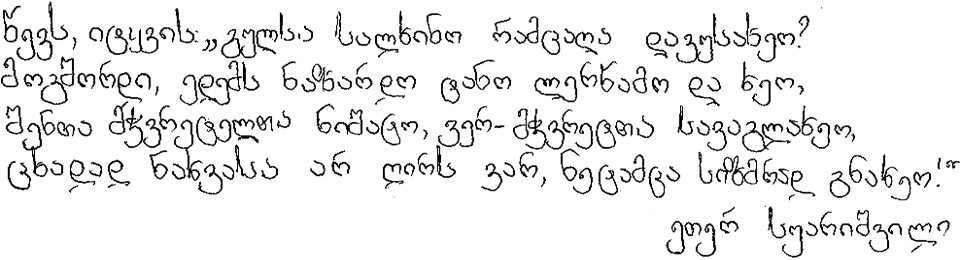 წევს, იტყვის: „გულსა სალხინო რამცაღა დავუსახეო?
მოგშორდი, ედემს ნაზარდო ტანო ლერწამო და ხეო,
შენთა მჭვრეტელთა ნიშატო, ვერ-მჭვრეტთა სავაგლახეო,
ცხადად ნახვასა არ ღირს ვარ, ნეტამცა სიზმრად გნახეო!“
ეთერ